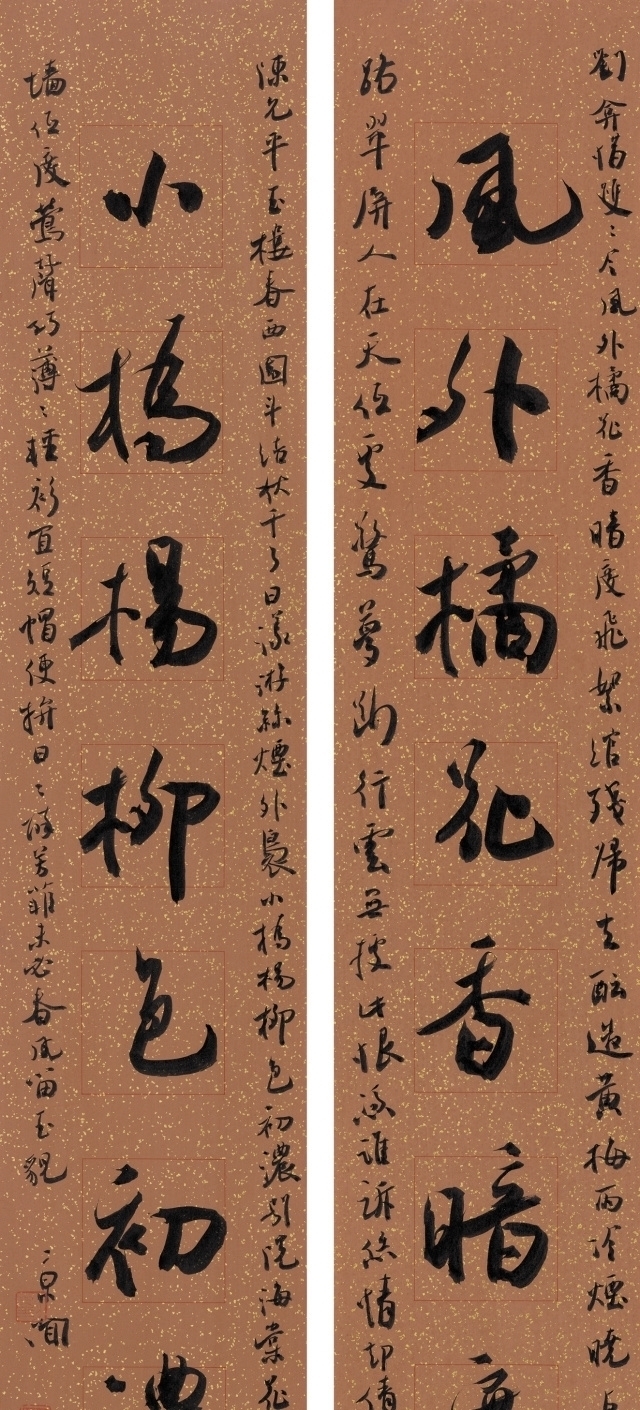 劉弇惜雙〻令風外橘花香暗度飛絮綰殘歸去醞造黃梅雨冷煙曉占
風外橘花香暗度
路翠屏人在天低處驚夢斷行雲無據此恨憑誰訴恁情却倩
陳允平玉樓春西園斗結秋千了日漾游絲煙外裊小橋楊柳色初濃別院海棠花
小橋楊柳色初濃
墻低度鶯聲巧薄〻輕衫宜短帽便拚日〻醉芳菲未必春風留玉貌